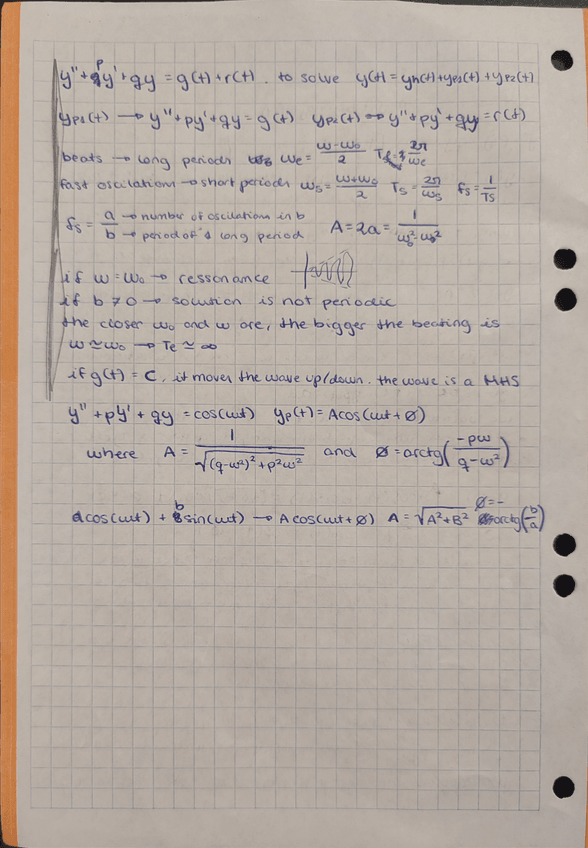 y'' + py' + qy = g(t) + r(t). to solve y(t) = yh(t) + yp1(t) + yp2(t)
yp1(t) → y'' + py' + qy = g(t) yp2(t) → y'' + py' + qy = r(t)
beats → long periods ωe = (ω-ω0)/2 Te = 2π/ωe
fast oscilations → short periods ωs = (ω+ω0)/2 Ts = 2π/ωs fs = 1/Ts
fs = a/b a → number of oscilations in b
b → period of 1 long period A = 2a = 1/(ω0²-ω²)
if ω = ω0 → ressonance
if b ≠ 0 → solution is not periodic
the closer ω0 and ω are, the bigger the beating is
ω ≃ ω0 → Te ≃ ∞
if g(t) = C, it moves the wave up/down. the wave is a MHS
y'' + py' + qy = cos(ωt) yp(t) = Acos(ωt + ø)
where A = 1/√((q-ω²)² + p²ω²) and ø = arctg(-pω/(q-ω²))
acos(ωt) + bsin(ωt) → Acos(ωt + ø) A = √(A² + B²) ø = -arctg(b/a)